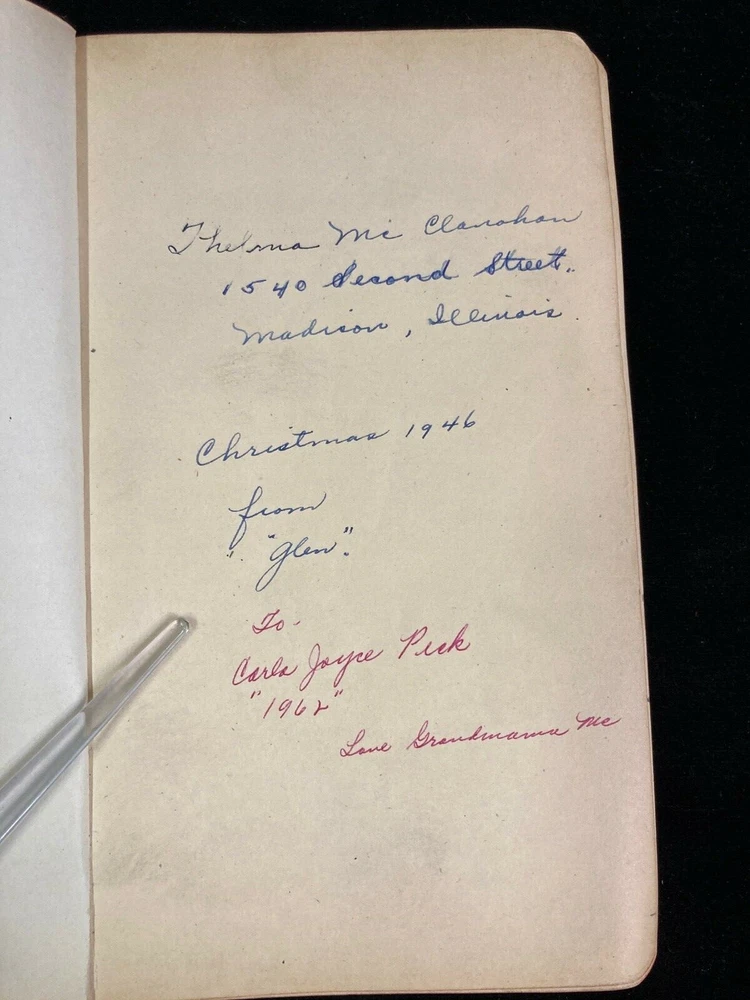 Thelma Mc Clanahan
1540 Second Street..
Madison, Illinois.
Christmas 1946
from
" "Glen".
To-
Carla Joyce Peek
"1962"
Love Grandmama Mc